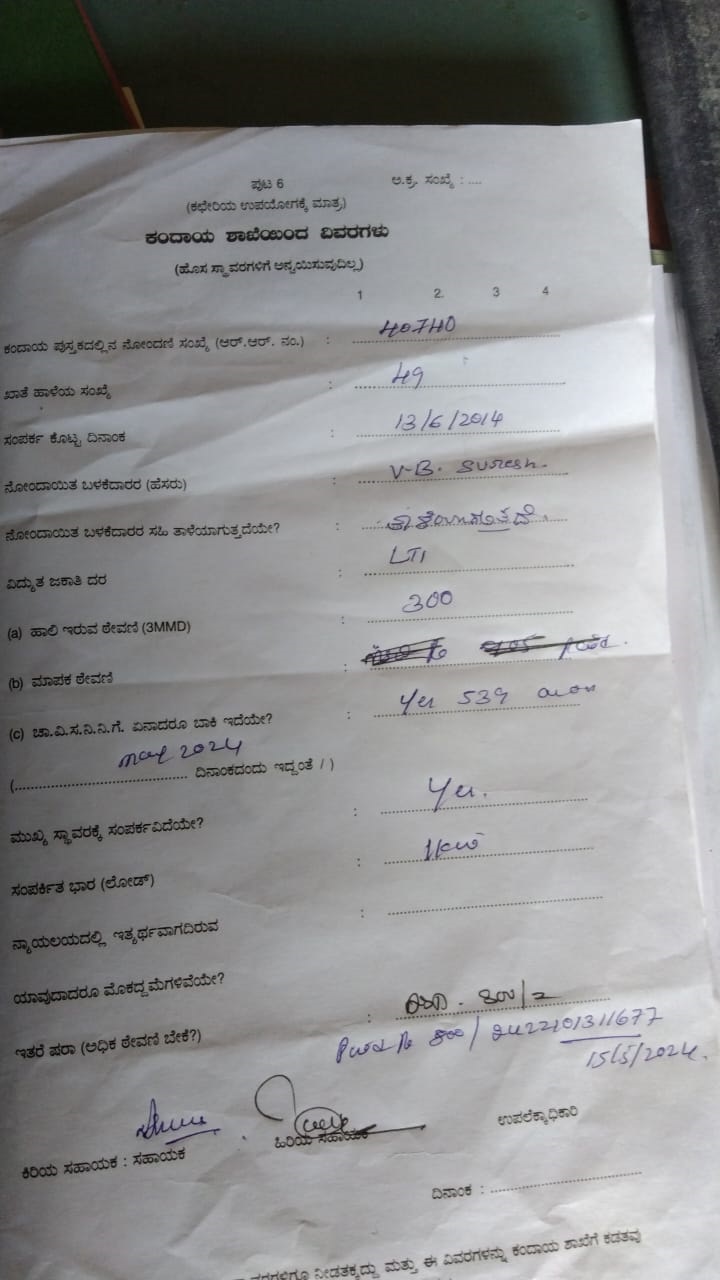 ಪುಟ 6 ಅ.ಕ್ರ. ಸಂಖ್ಯೆ : ....
(ಕಛೇರಿಯ ಉಪಯೋಗಕ್ಕೆ ಮಾತ್ರ)
ಕಂದಾಯ ಶಾಖೆಯಿಂದ ವಿವರಗಳು
(ಹೊಸ ಸ್ಥಾವರಗಳಿಗೆ ಅನ್ವಯಿಸುವುದಿಲ್ಲ)
1 2. 3 4
ಕಂದಾಯ ಪುಸ್ತಕದಲ್ಲಿನ ನೋಂದಣಿ ಸಂಖ್ಯೆ (ಆರ್.ಆರ್. ನಂ.) : 40740
ಖಾತೆ ಹಾಳೆಯ ಸಂಖ್ಯೆ : 49
ಸಂಪರ್ಕ ಕೊಟ್ಟ ದಿನಾಂಕ : 13/6/2014
ನೋಂದಾಯಿತ ಬಳಕೆದಾರರ (ಹೆಸರು) : V.B. Suresh.
ನೋಂದಾಯಿತ ಬಳಕೆದಾರರ ಸಹಿ ತಾಳೆಯಾಗುತ್ತದೆಯೇ? :
ವಿದ್ಯುತ ಜಕಾತಿ ದರ : LT1
(a) ಹಾಲಿ ಇರುವ ಠೇವಣಿ (3MMD) : 300
(b) ಮಾಪಕ ಠೇವಣಿ :
(c) ಚಾ.ವಿ.ಸ.ನಿ.ನಿ.ಗೆ. ಏನಾದರೂ ಬಾಕಿ ಇದೆಯೇ? : Yes 539
(may 2024 ದಿನಾಂಕದಂದು ಇದ್ದಂತೆ / )
ಮುಖ್ಯ ಸ್ಥಾವರಕ್ಕೆ ಸಂಪರ್ಕವಿದೆಯೇ? : Yes.
ಸಂಪರ್ಕಿತ ಭಾರ (ಲೋಡ್) : 1kw
ನ್ಯಾಯಲಯದಲ್ಲಿ ಇತ್ಯರ್ಥವಾಗದಿರುವ :
ಯಾವುದಾದರೂ ಮೊಕದ್ದಮೆಗಳಿವೆಯೇ?
ಇತರೆ ಷರಾ (ಅಧಿಕ ಠೇವಣಿ ಬೇಕೆ?) :
15/5/2024.
ಕಿರಿಯ ಸಹಾಯಕ : ಸಹಾಯಕ ಹಿರಿಯ ಸಹಾಯಕ ಉಪಲೆಕ್ಕಾಧಿಕಾರಿ
ದಿನಾಂಕ :
ನೀಡತಕ್ಕದ್ದು ಮತ್ತು ಈ ವಿವರಗಳನ್ನು ಕಂದಾಯ ಶಾಖೆಗೆ ಕಡತವು